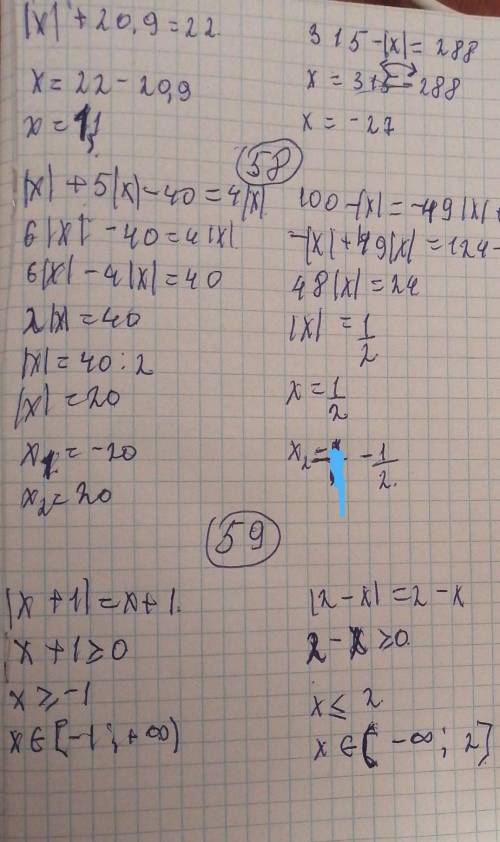 |x| + 20,9 = 22
x = 22 - 20,9
x = 1,1
315 - |x| = 288
x = 315 - 288
x = -27
58
|x| + 5|x| - 40 = 4|x|
6|x| - 40 = 4|x|
6|x| - 4|x| = 40
2|x| = 40
|x| = 40 : 2
|x| = 20
x₁ = -20
x₂ = 20
100 - |x| = -49|x| +
-|x| + 49|x| = 124 -
48|x| = 24
|x| = 1/2
x = 1/2
x₂ = -1/2.
59
|x + 1| = x + 1.
x + 1 ≥ 0
x ≥ -1
x ∈ [-1; +∞)
|2 - x| = 2 - x
2 - x ≥ 0.
x ≤ 2
x ∈ (-∞; 2]